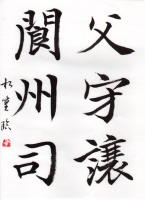 父守讓
閬州司
松雲臨